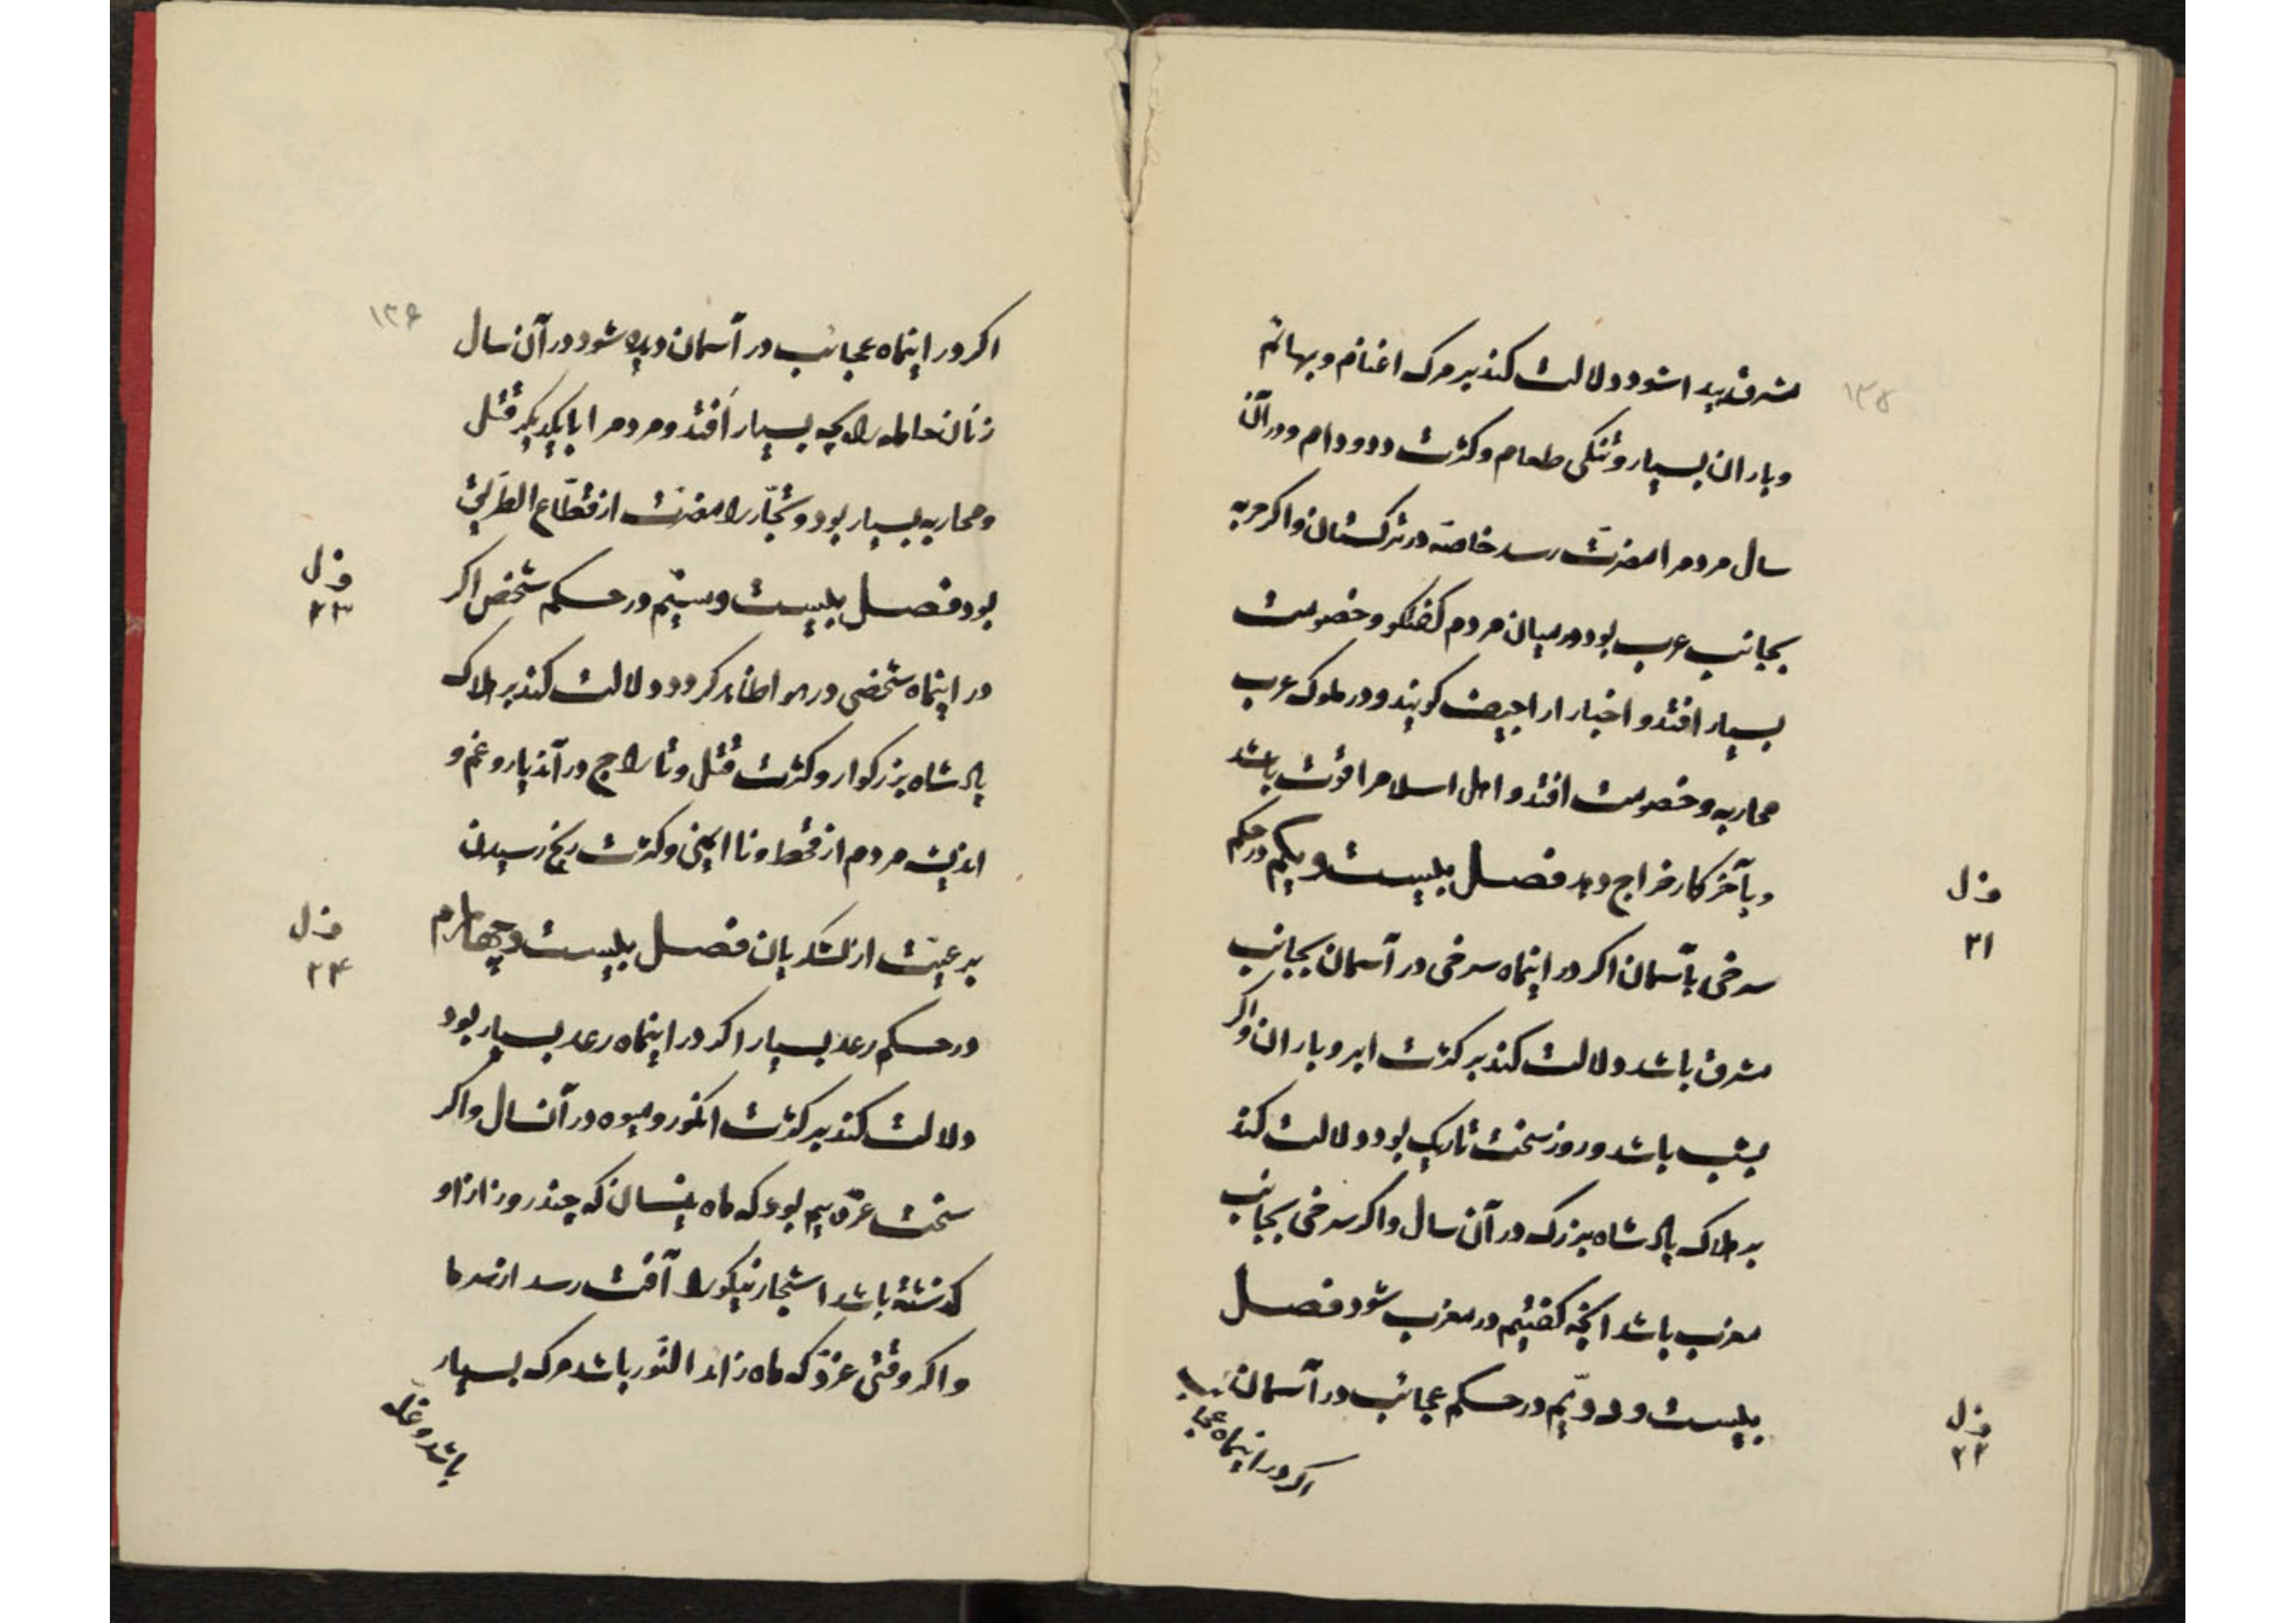 ۱۳۵
مشرق پیدا شود دلالت کند بر مرک اغنام و بهائم
و باران بسیار و تنکی طعام و کثرت دد و دام و در آن
سال مردمرا مضرت رسد خاصّه در ترکستان واکر حربه
بجانب عرب بود در میان مردم کفتکو و خصومت
بسیار افتد و اخبار اراجیف کویند و در ملوک عرب
محاربه و خصومت افتد و اهل اسلامرا قوت باشد
و بآخر کار خراج دهد فصل بیست و یکم در حکم
ف ل
۲۱
سرخی بآسمان اکر در اینماه سرخی در آسمان بجانب
مشرق باشد دلالت کند بر کثرت ابر و باران واکر
بشب باشد و روز سخت تاریک بود دلالت کند
بر هلاک پادشاه بزرک در آن سال واکر سرخی بجانب
مغرب باشد انچه کفتیم در مغرب شود فصل
بیست و دویّم در حکم عجائب در آسمان
ف ل
۲۲
اکر در اینماه عجا
۱۳۶
اکر در اینماه عجائب در آسمان دیده شود در آن سال
زنان حامله را بچه بسیار اَفتد و مردمرا با یکدیکر قتل
و محاربه بسیار بود و تجّار را مضرّت از قطّاع الطریق
بود فصل بیست و سیّم در حکم شخص اکر
ف ل
۲۳
در اینماه شخصی در هوا ظاهر کردد دلالت کند بر هلاک
پادشاه بزرکوار و کثرت قتل و تاراج در آندیار و غم و
اذیت مردم از قحط و نا ایمنی و کثرت رنج رسیدن
برعیّت از لشکریان فصل بیست و چهارم
ف ل
۲۴
در حکم رعد بسیار اکر در اینماه رعد بسیار بود
دلالت کند بر کثرت انکور و میوه در آنسال واکر
سخت غرّد بیم بود که ماه نیسان که چند روز از او
کذشته باشد اشجار نیکو را آفت رسد از سرما
و اکر وقتی غرّد که ماه زائد النّور باشد مرک بسیار
باشد و غله